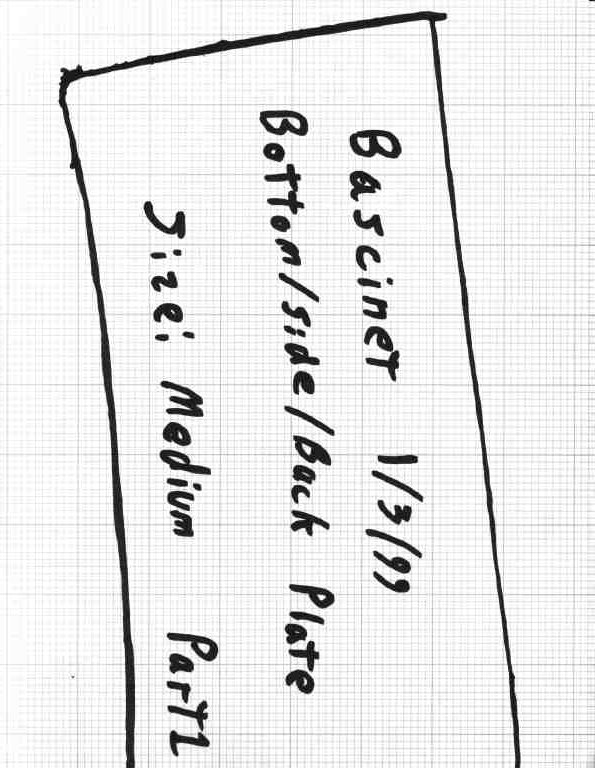 Bascinet 1/3/99
Bottom/side/Back Plate
Size: Medium Part 1